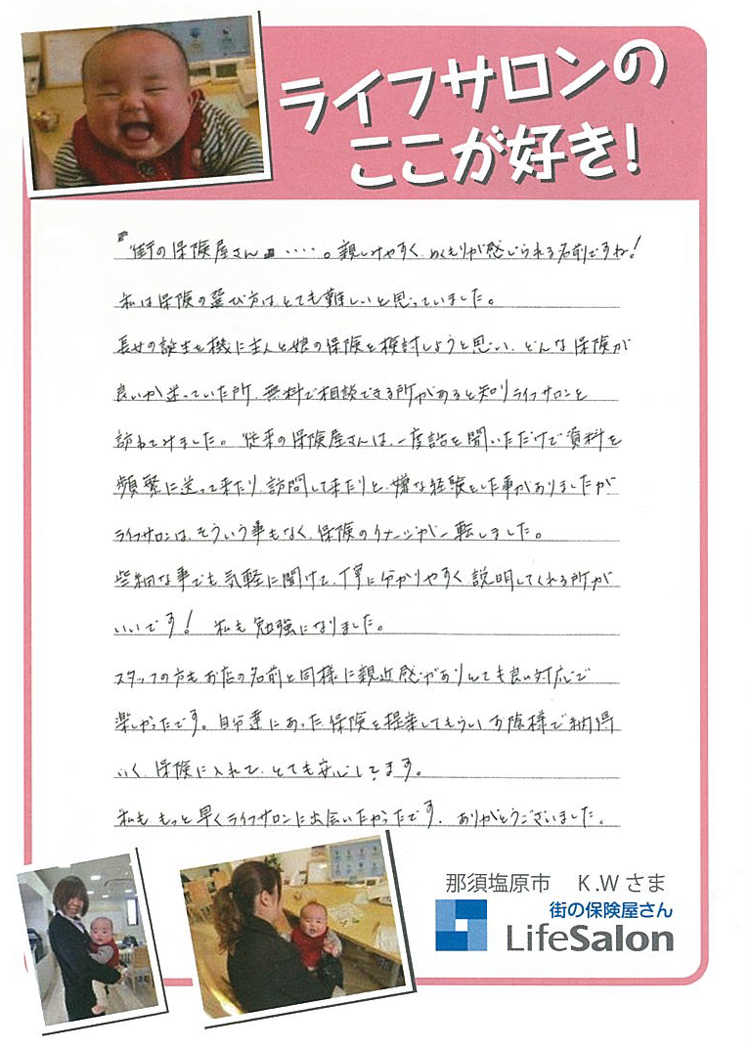 ライフサロンの
ここが好き!
"街の保険屋さん"‥‥。親しみやすく、ぬくもりが感じられる名前ですね!
私は保険の選び方はとても難しいと思っていました。
長女の誕生を機に主人と娘の保険を検討しようと思い、どんな保険が
良いか迷っていた所、無料で相談できる所があると知りライフサロンを
訪ねてみました。従来の保険屋さんは、一度話を聞いただけで資料を
頻繁に送って来たり、訪問して来たりと、嫌な経験をした事がありましたが
ライフサロンは、そういう事もなく、保険のイメージが一転しました。
些細な事でも、気軽に聞けて、丁寧に分かりやすく説明してくれる所が
いいです! 私も勉強になりました。
スタッフの方もお店の名前と同様に親近感がありとても良い対応で
楽しかったです。自分達にあった保険を提案してもらいお陰様で納得
いく、保険に入れて、とても安心してます。
私も もっと早くライフサロンに出会いたかったです。ありがとうございました。
那須塩原市 K.Wさま
街の保険屋さん
LifeSalon